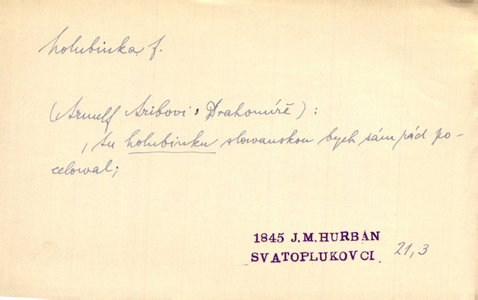 holubinka f.
(Arnulf Aribovi o Drahomíře):
, tu holubinku slowanskou bych sám rád po-
celowal;
1845 J.M.HURBAN
SVATOPLUKOVCI 21,3